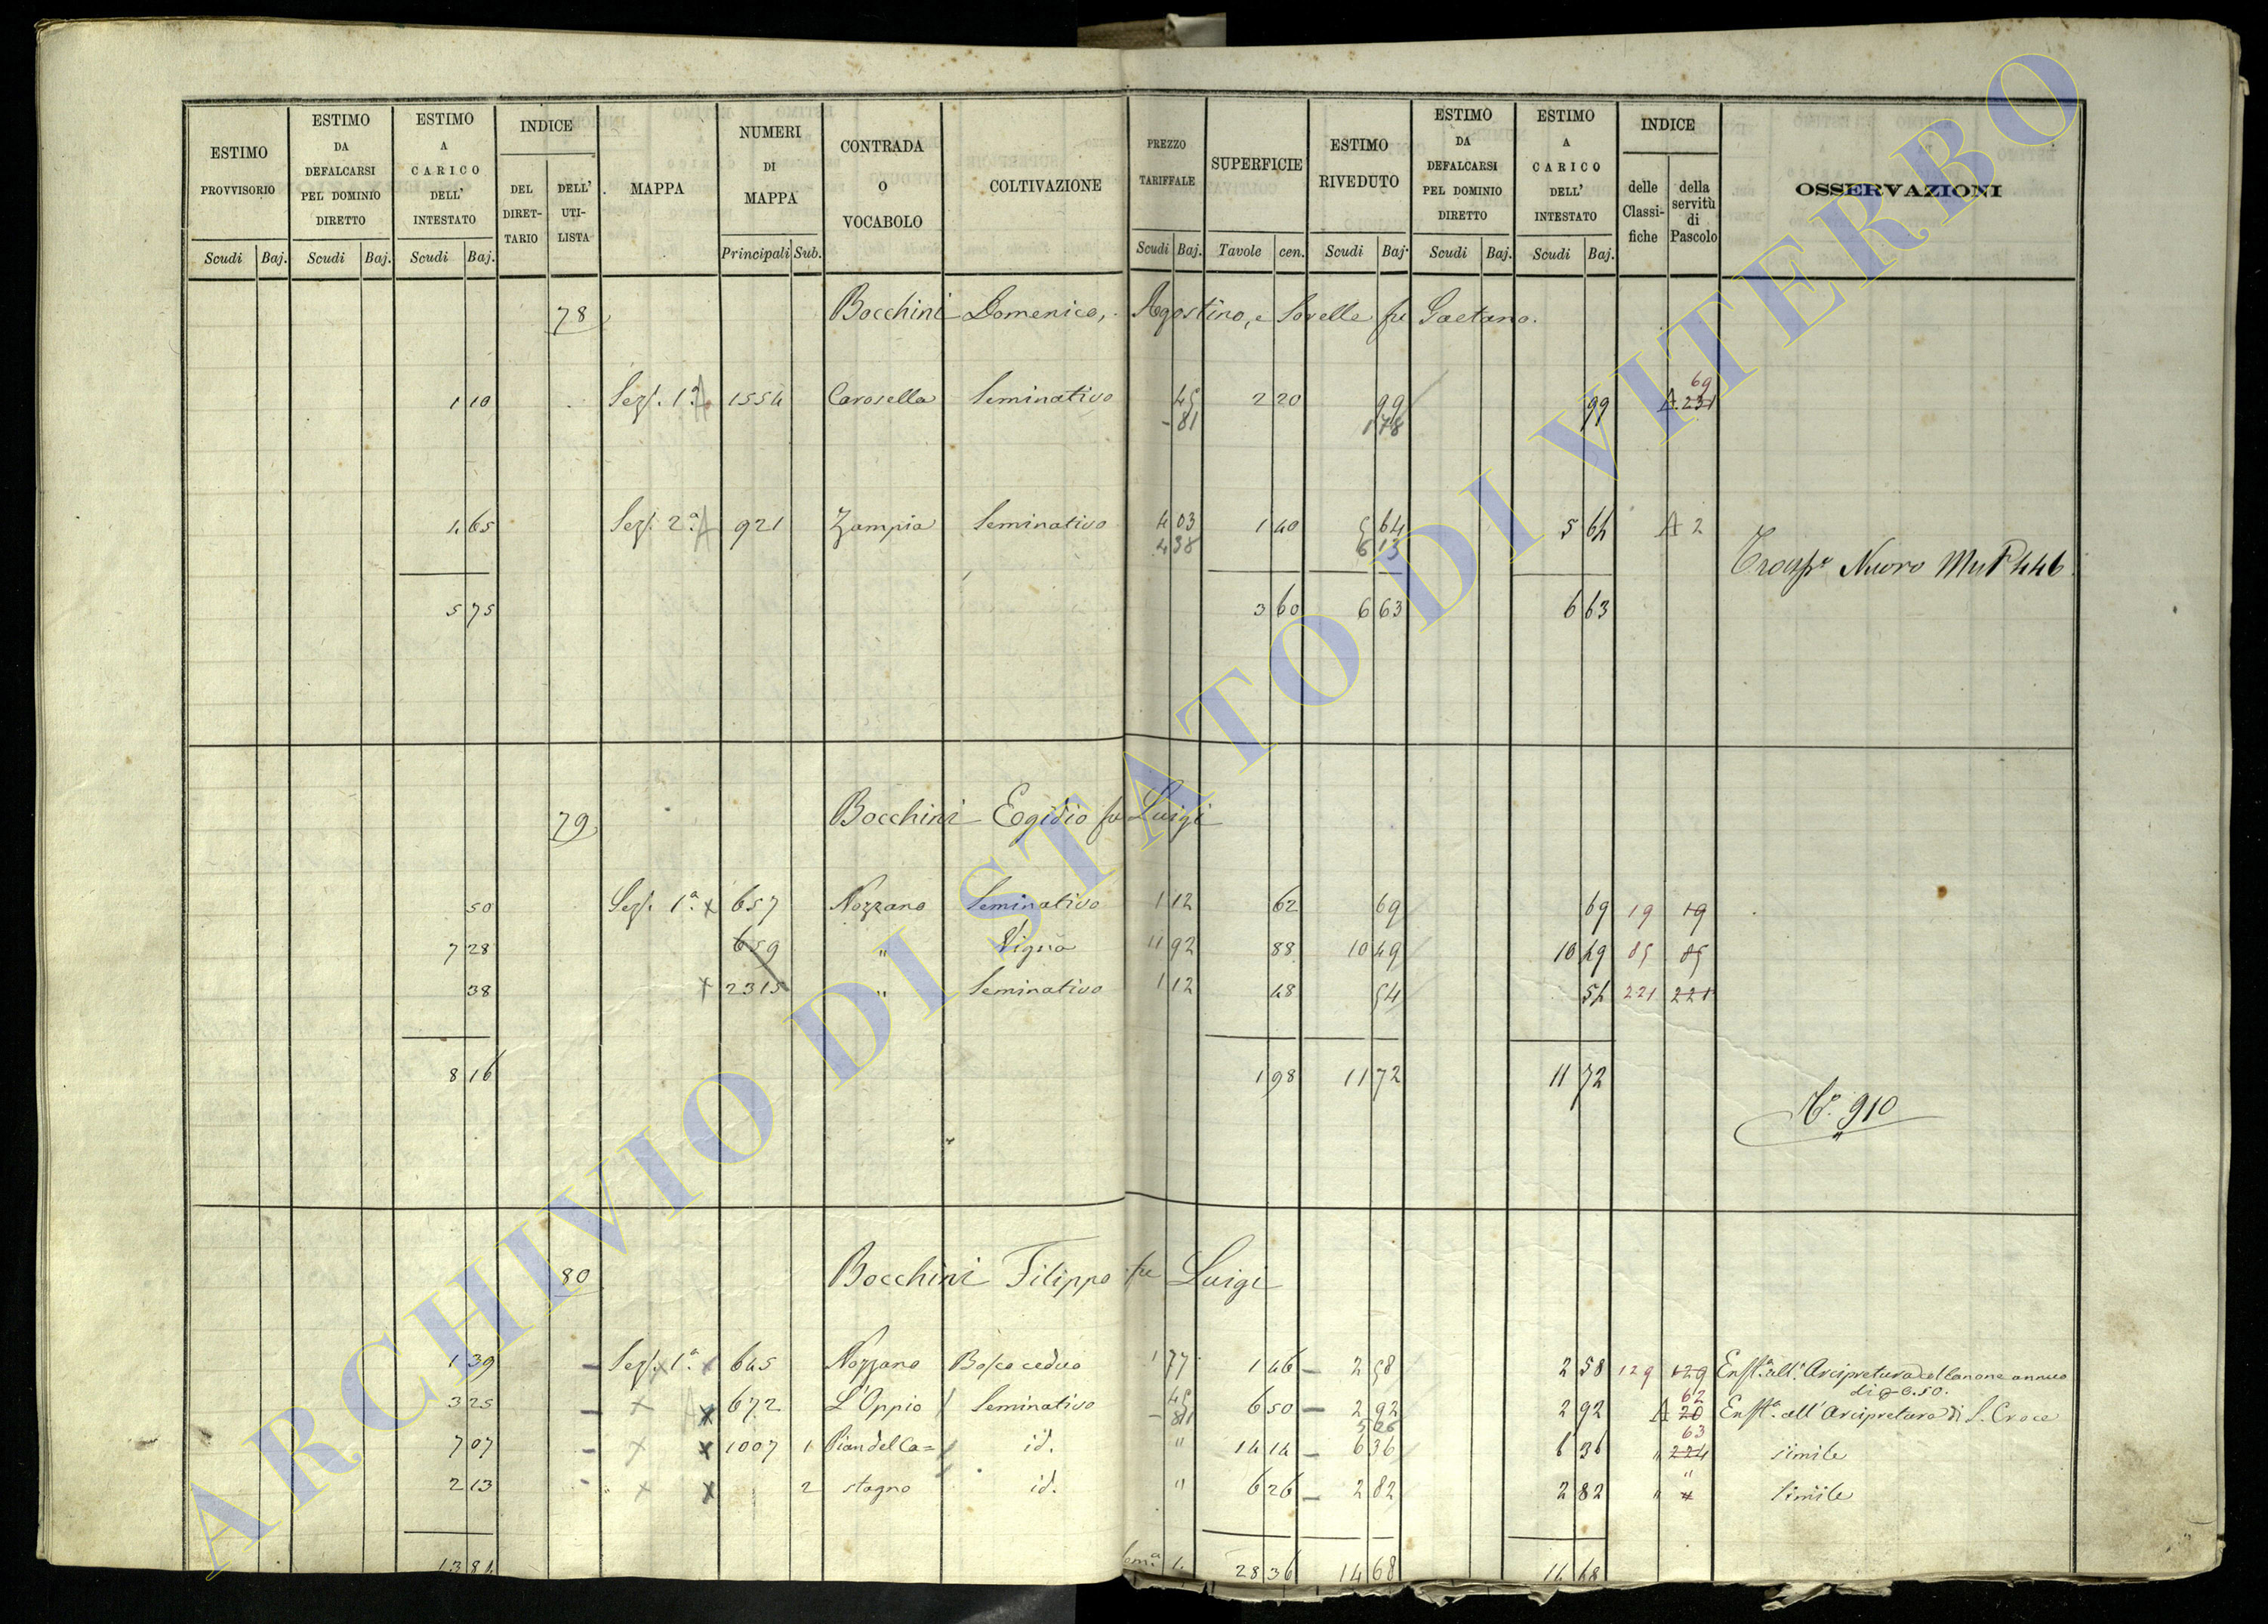 ESTIMO PROVVISORIO Scudi Baj. ESTIMO DA DEFALCARSI PEL DOMINIO DIRETTO Scudi Baj. ESTIMO A CARICO DELL' INTESTATO Scudi Baj. INDICE DEL DIRETTARIO DELL' UTILISTA MAPPA NUMERI DI MAPPA Principali Sub. CONTRADA O VOCABOLO COLTIVAZIONE PREZZO TARIFFALE Scudi Baj. SUPERFICIE Tavole cen. ESTIMO RIVEDUTO Scudi Baj. ESTIMO DA DEFALCARSI PEL DOMINIO DIRETTO Scudi Baj. ESTIMO A CARICO DELL' INTESTATO Scudi Baj. INDICE delle Classifiche della servitù di Pascolo OSSERVAZIONI
78 Bocchini Domenico, Agostino, e Sorelle fu Gaetano.
69
1 10 Sez. 1ª A 1554 Carosella Seminativo 45 2 20 99 99 A 231
- 81 1 78
4 65 Sez. 2ª A 921 Zampia Seminativo 4 03 1 40 5 64 5 64 A 2
4 38 6 13
Nuovo 446
5 75 3 60 6 63 6 63
79 Bocchini Egidio fu Luigi
50 Sez. 1ª x 657 Nozzano Seminativo 1 12 62 69 69 19 19
7 28 659 " Vigna 11 92 88 10 49 10 49 85 85
38 x 2315 " Seminativo 1 12 48 54 54 221 221
8 16 1 98 11 72 11 72
Nº. 910
80 Bocchini Filippo fu Luigi
1 39 - Sez. 1ª x 645 Nozzano Bosco ceduo 1 77 1 46 - 2 58 2 58 129 129 Enftª all' Arcipretura del canone annuo
di 0.50.
62
3 25 - x A x 672 L'Oppio Seminativo 45 6 50 - 2 92 2 92 A 20 Enftª all' Arcipretura di S. Croce
- 81 5 26
63
7 07 - x x 1007 1 Pian del Ca= id. " 14 14 - 6 36 6 36 " 224 simile
"
2 13 - x x 2 stagno id. " 6 26 - 2 82 2 82 " " simile
13 84 28 36 14 68 14 68
ARCHIVIO DI STATO DI VITERBO